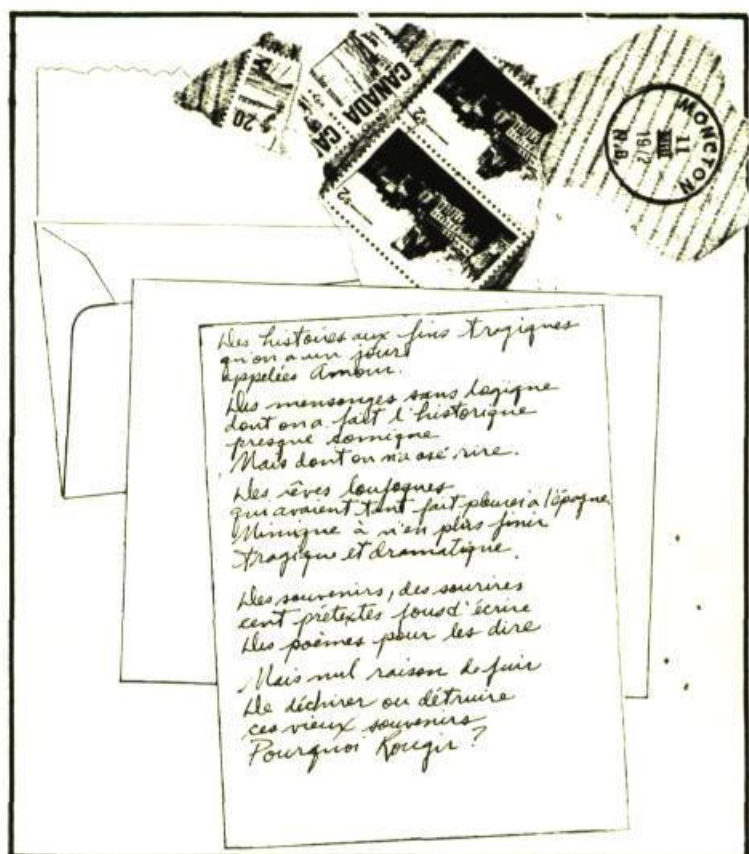 20
CANADA CA
2
2
MONCTON
11
1972
N.B.
Des histoires aux fins tragiques
qu'on a un jour
appelées Amour.
Des mensonges sans logique
dont on a fait l'historique
presque comique
Mais dont on n'a osé rire.
Des rêves loufoques
qui avaient tant fait pleurer à l'époque
Mimique à n'en plus finir
tragique et dramatique.
Des souvenirs, des sourires
cent prétextes fous d'écrire
Des poèmes pour les dire
Mais nul raison de fuir
De déchirer ou détruire
ces vieux souvenirs
Pourquoi Rougir?